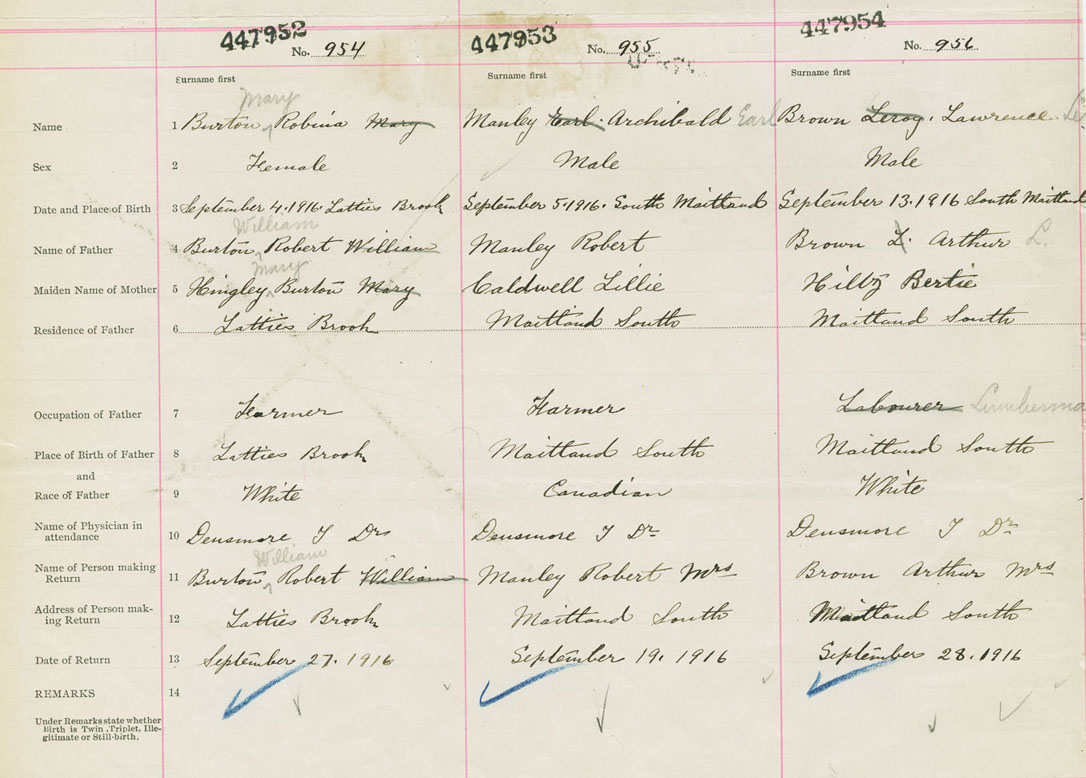 447952 447953 447954
No. 954 No. 955 No. 956
Surname first Surname first Surname first
Mary
Name 1 Burton Robina Mary Manley Earl Archibald Earl Brown Leroy Lawrence
Sex 2 Female Male Male
Date and Place of Birth 3 September 4.1916. Latties Brook September 5.1916. South Maitland September 13.1916 South Maitland
William
Name of Father 4 Burton Robert William Manley Robert Brown L. Arthur L.
Mary
Maiden Name of Mother 5 Hingley Burton Mary Caldwell Lillie Hiltz Bertie
Residence of Father 6 Latties Brook Maitland South Maitland South
Occupation of Father 7 Farmer Farmer Labourer Lumberma
Place of Birth of Father 8 Latties Brook Maitland South Maitland South
and
Race of Father 9 White Canadian White
Name of Physician in
attendance 10 Densmore Drs Densmore Dr Densmore Dr
William
Name of Person making
Return 11 Burton Robert William Manley Robert Mrs Brown Arthur Mrs
Address of Person mak-
ing Return 12 Latties Brook Maitland South Maitland South
Date of Return 13 September 27. 1916 September 19. 1916 September 28. 1916
REMARKS 14
Under Remarks state whether
Birth is Twin, Triplet, Ille-
gitimate or Still-birth.